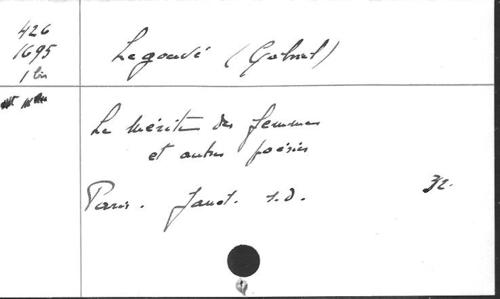 426
1695
1 bis
Legouvé (Gabriel)
Le Mérite des femmes
et autres poésies
Paris. Janet. s.d. 32.